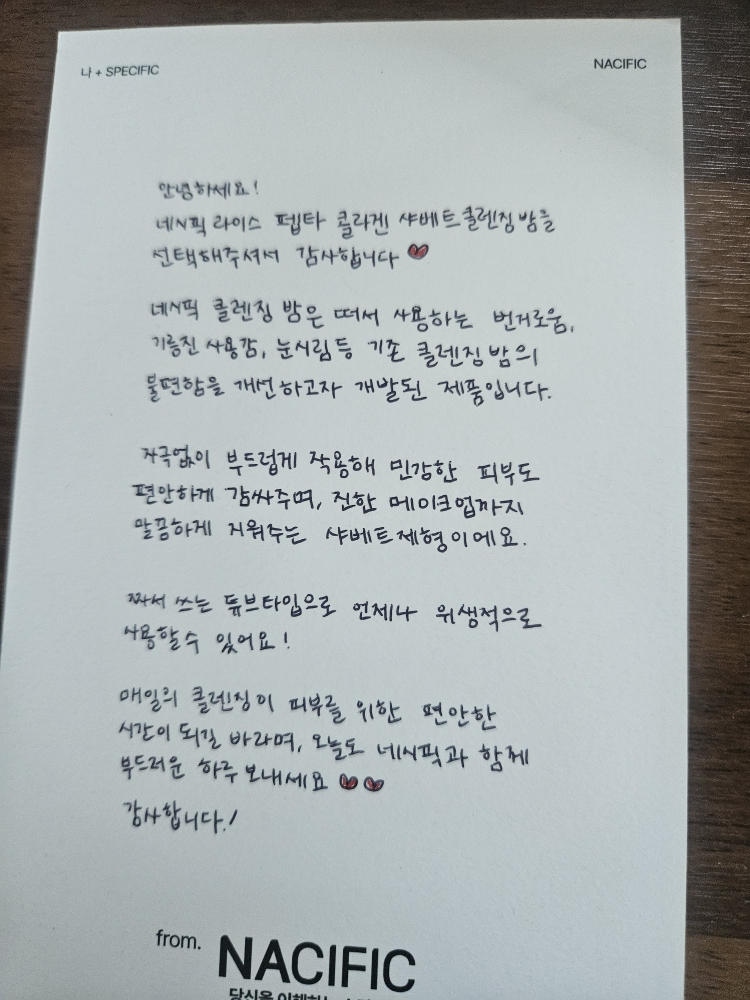 나 + SPECIFIC
NACIFIC
안녕하세요!
네시픽 라이스 펩타 콜라겐 샤베트클렌징밤을
선택해주셔서 감사합니다 ❤
네시픽 클렌징 밤은 떠서 사용하는 번거로움,
기름진 사용감, 눈시림 등 기존 클렌징밤의
불편함을 개선하고자 개발된 제품입니다.
자극없이 부드럽게 작용해 민감한 피부도
편안하게 감싸주며, 진한 메이크업까지
말끔하게 지워주는 샤베트제형이에요.
짜서 쓰는 튜브타입으로 언제나 위생적으로
사용할수 있어요!
매일의 클렌징이 피부를 위한 편안한
시간이 되길 바라며, 오늘도 네시픽과 함께
부드러운 하루 보내세요 ❤❤
감사합니다!
from. NACIFIC
당신을 이해하는